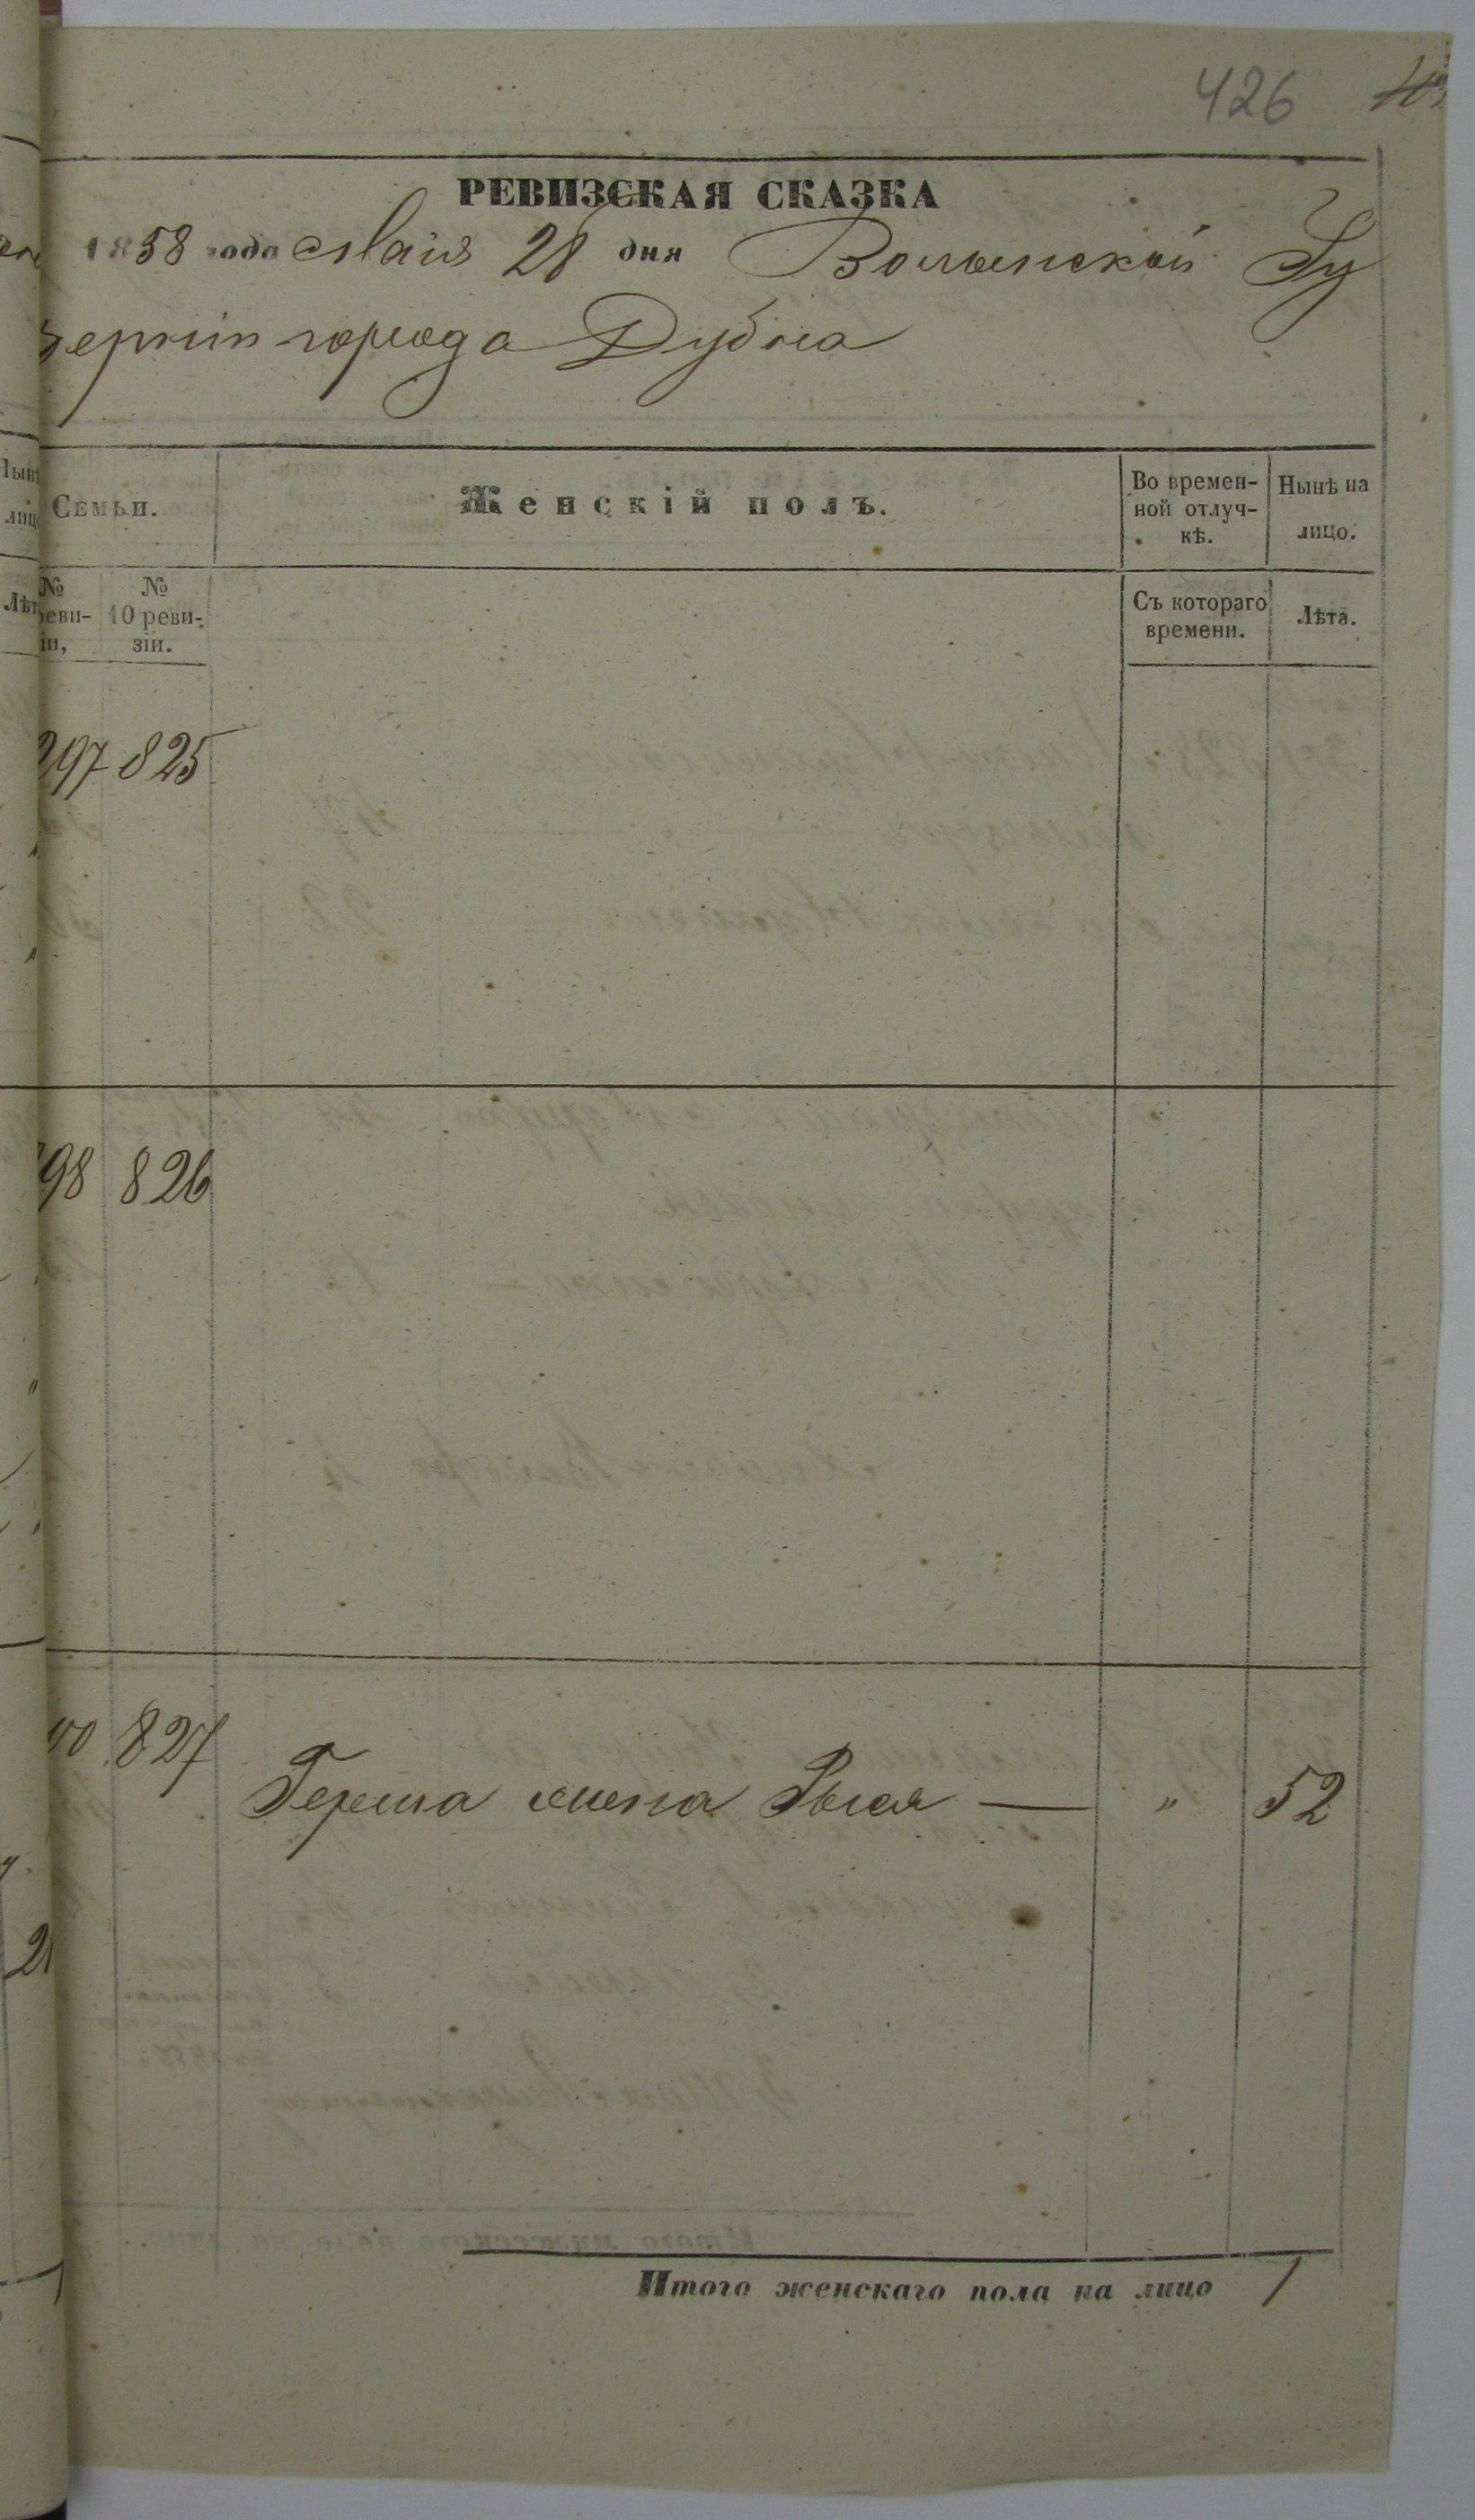 426
РЕВИЗСКАЯ СКАЗКА
1858 года Маія 28 дня Волынской Гу
берніи города Дубна
Семьи.
Женскій полъ.
Во времен-
ной отлуч-
кѣ.
Нынѣ на
лицо.
№
реви-
іи,
№
10 реви-
зіи.
Съ котораго
времени.
Лѣта.
297 825
98 826
00 827
Герша жена Рыся — „ 52
Итого женскаго пола на лицо 1